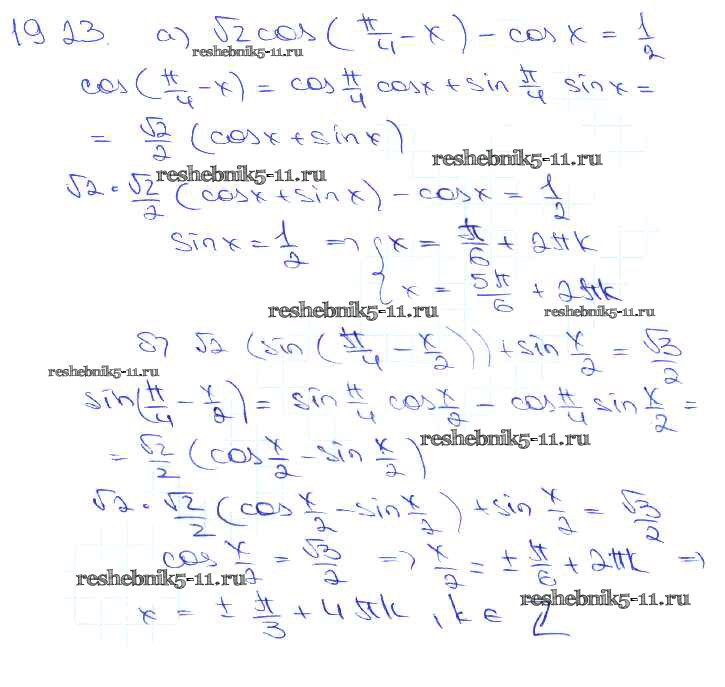 19 23. а) √2 cos(π/4 - x) - cos x = 1/2
reshebnik5-11.ru
cos(π/4 - x) = cos π/4 cos x + sin π/4 sin x =
= √2/2 (cos x + sin x)
reshebnik5-11.ru
reshebnik5-11.ru
√2 · √2/2 (cos x + sin x) - cos x = 1/2
sin x = 1/2 => { x = π/6 + 2πk
x = 5π/6 + 2πk
reshebnik5-11.ru
reshebnik5-11.ru
б) √2 (sin(π/4 - x/2)) + sin x/2 = √3/2
reshebnik5-11.ru
sin(π/4 - x/2) = sin π/4 cos x/2 - cos π/4 sin x/2 =
reshebnik5-11.ru
= √2/2 (cos x/2 - sin x/2)
√2 · √2/2 (cos x/2 - sin x/2) + sin x/2 = √3/2
cos x/2 = √3/2 => x/2 = ± π/6 + 2πk =>
reshebnik5-11.ru
reshebnik5-11.ru
x = ± π/3 + 4πk, k ∈ Z